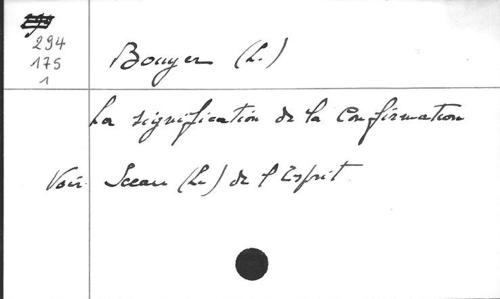 294
175
1
Bouyer (L.)
La signification de la Confirmation
Voir Sceau (Le) de l'Esprit